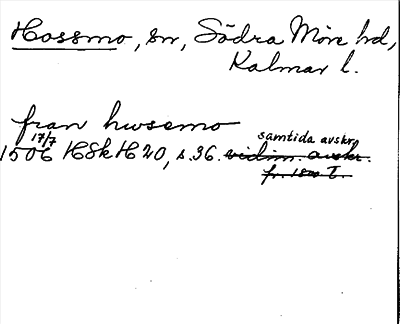 Hossmo, sn, Södra Möre hd,
Kalmar l.
fran hwssmo
17/7
samtida avskr.
1506 HSkH 20, s. 36. vidim. avskr.
fr.